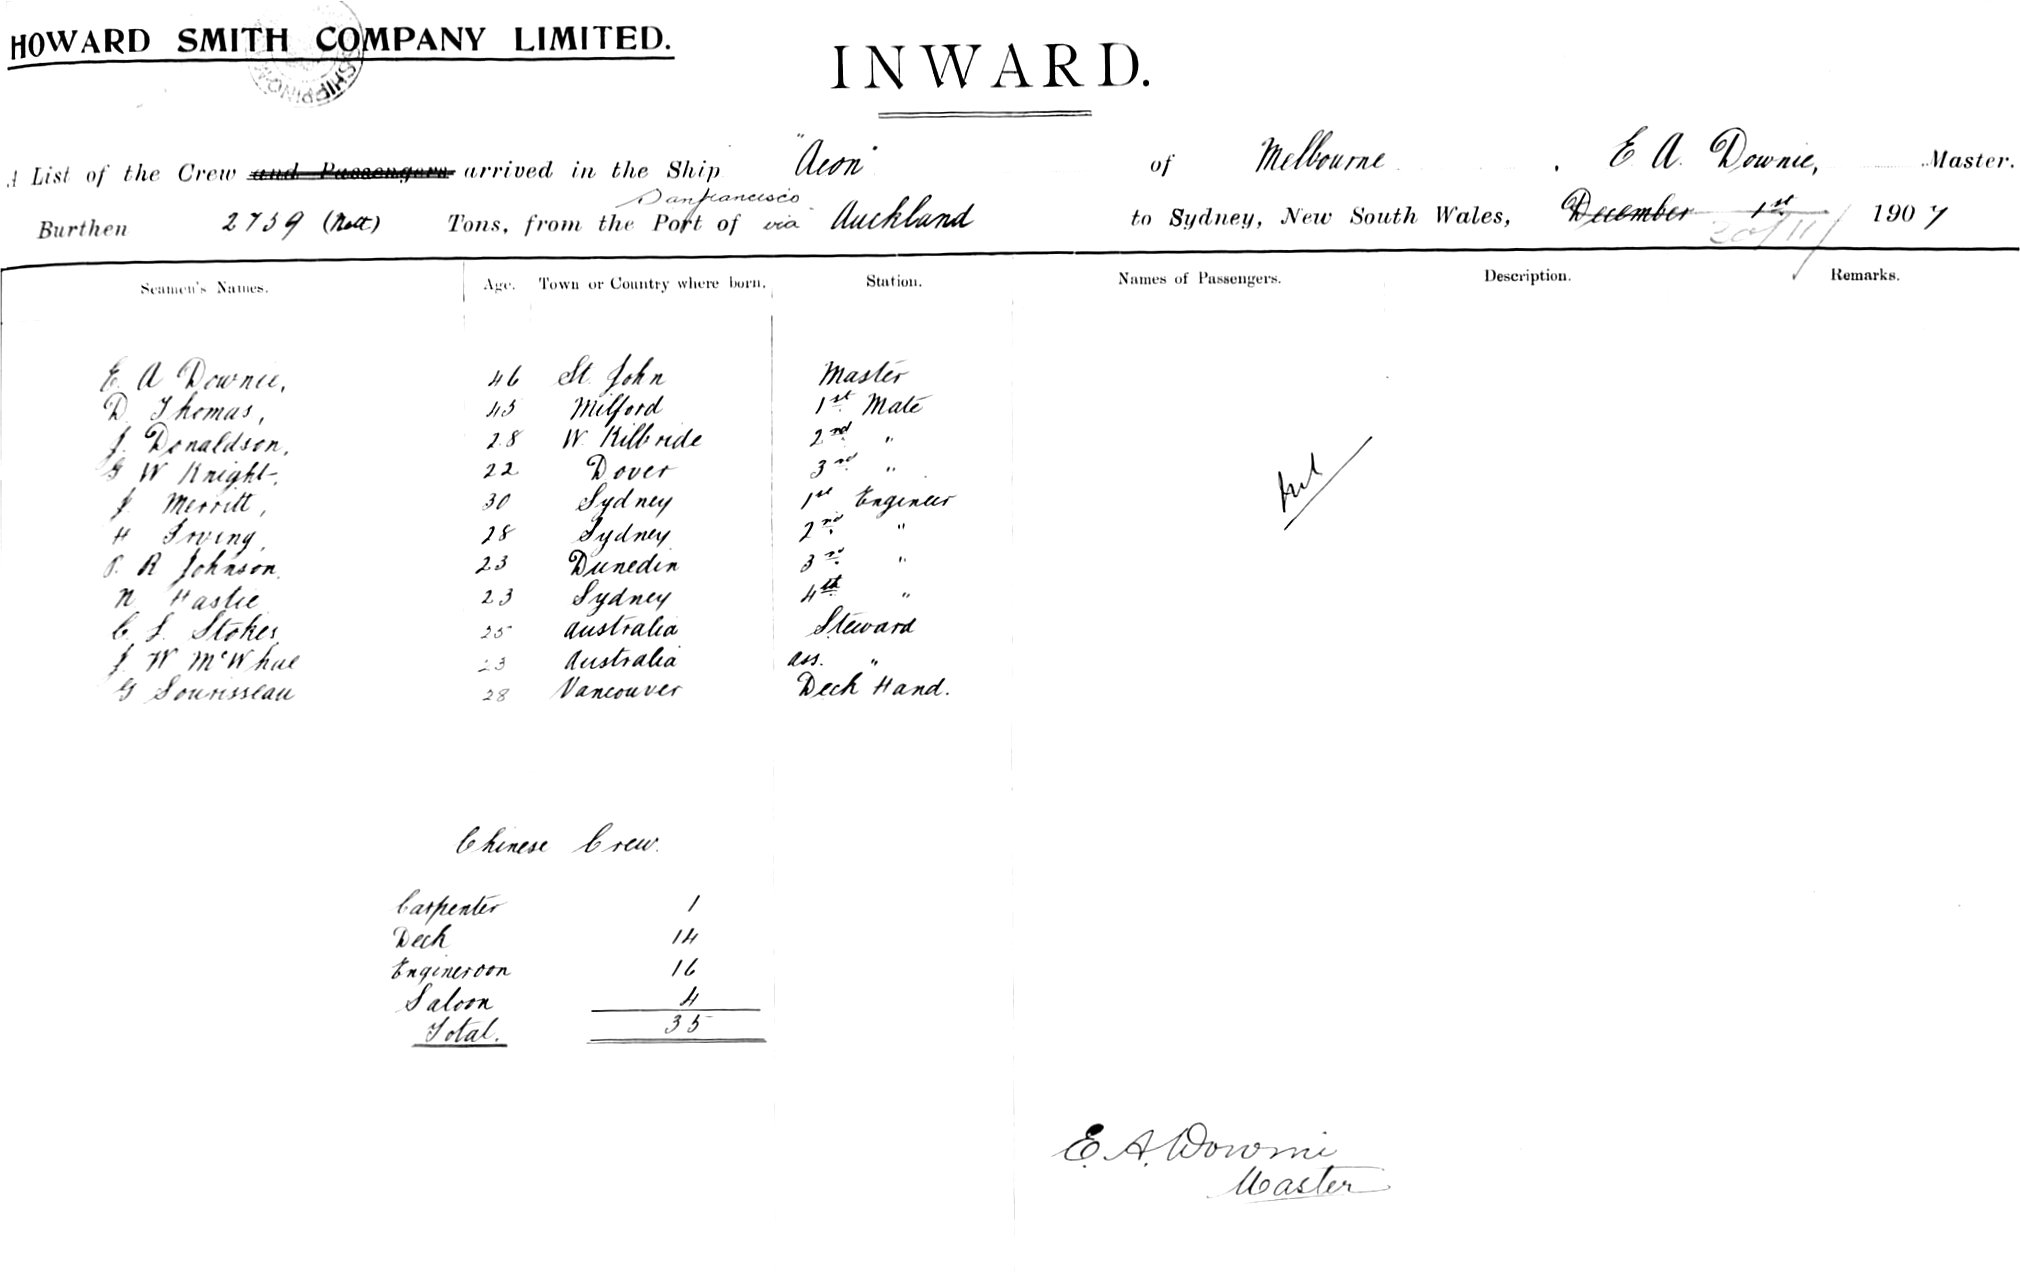 HOWARD SMITH COMPANY LIMITED.
SHIPPING
INWARD.
A List of the Crew and Passengers arrived in the Ship "Aeon" of Melbourne, E A. Downie, Master.
Sanfrancisco
Burthen 2739 (Nett) Tons, from the Port of via Auckland to Sydney, New South Wales, December 1st 1907
30/11/
Seamen's Names. Age. Town or Country where born. Station. Names of Passengers. Description. Remarks.
E. A Downie, 46 St. John Master
D. Thomas, 45 Milford 1st Mate
J. Donaldson, 28 W. Kilbride 2nd "
G W Knight, 22 Dover 3rd "
J. Merritt, 30 Sydney 1st Engineer
H Irving, 28 Sydney 2nd "
P. R Johnson 23 Dunedin 3rd "
N Hastie 23 Sydney 4th "
C. S. Stokes 25 Australia Steward
J. W McWhae 23 Australia Ass. "
G Sourisseau 28 Vancouver Deck Hand.
Nil
Chinese Crew.
Carpenter 1
Deck 14
Engineroon 16
Saloon 4
Total. 35
E. A. Downie
Master